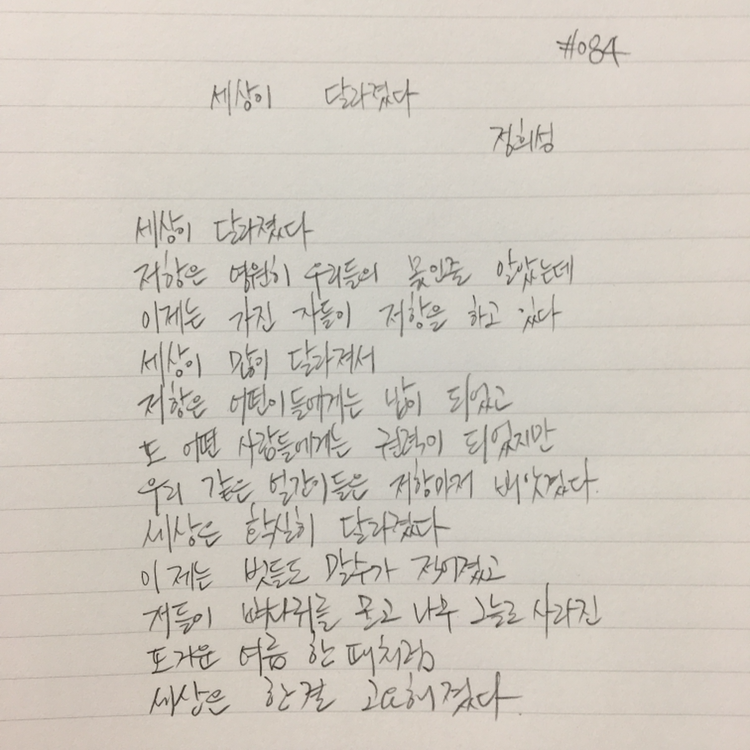 #084
세상이 달라졌다
정희성
세상이 달라졌다
저항은 영원히 우리들의 몫인줄 알았는데
이제는 가진 자들이 저항을 하고 있다
세상이 많이 달라져서
저항은 어떤이들에게는 밥이 되었고
또 어떤 사람들에게는 권력이 되었지만
우리 같은 얼간이들은 저항마저 빼앗겼다.
세상은 확실히 달라졌다
이제는 벗들도 말수가 적어졌고
저들이 뼈다귀를 물고 나무 그늘로 사라진
뜨거운 여름 한때처럼
세상은 한결 고요해졌다.